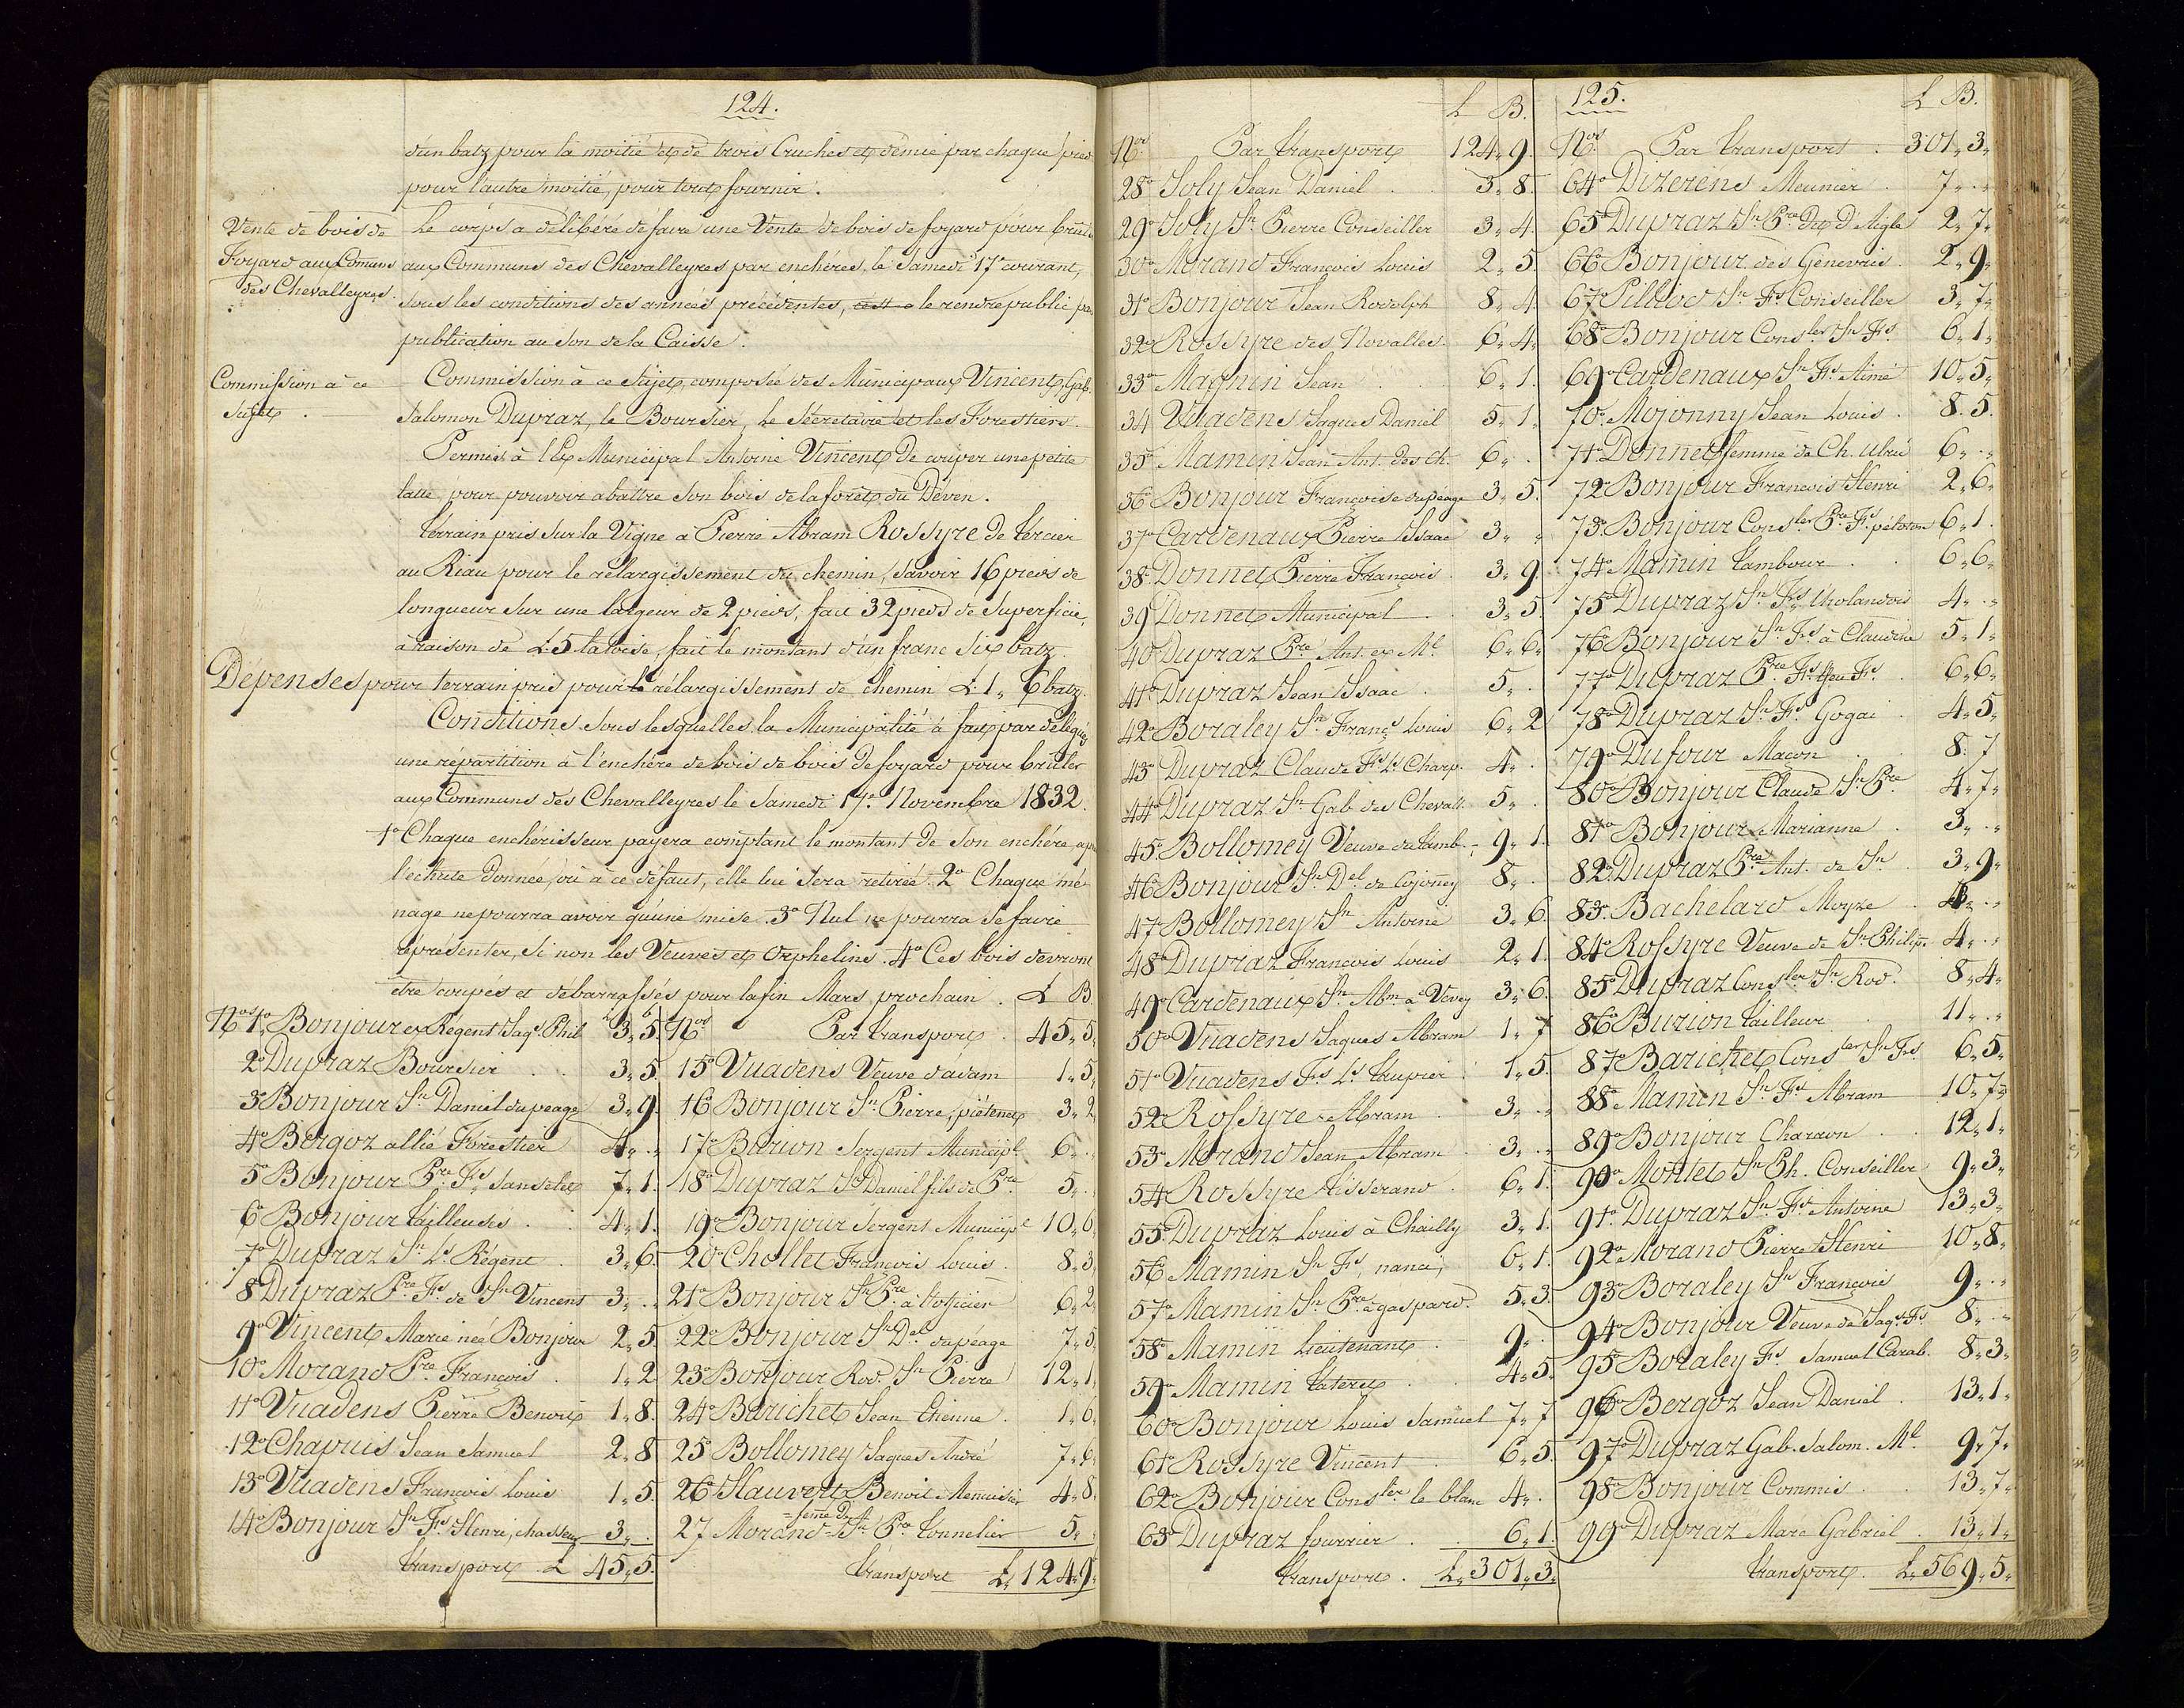 124.
d'un batz pour la moitié et de trois Cruches et demie par chaque pied
pour l'autre moitié, pour tout fournir.
Vente de bois de
Foyard aux Comuns
des Chevalleyres.
Le corps a délibéré de faire une Vente de bois de foyard pour brûler
aux Communs des Chevalleyres par enchères, le Samedi 17e courant,
sous les conditions des années précédentes, le rendre public par
publication au son de la Caisse.
Commission à ce
Sujet.
Commission à ce Sujet, composée des Municipaux Vincent, Gab.
Salomon Dupraz, le Boursier, le Sécretaire et les Forestiers.
Permis à l'Ex Municipal Antoine Vincent de couper une petite
latte, pour pouvoir abattre son bois de la forêt du Déven.
terrain pris sur la Vigne à Pierre Abram Rossyre de tercier
au Riau pour le rélargissement du chemin, Savoir 16 pieds de
longueur sur une largeur de 2 pieds, fait 32 pieds de Superficie,
à raison de L. 5 la toise, fait le montant d'un franc Six batz.
Dépenses pour terrain pris pour le rélargissement de chemin L. 1„ 6 batz.
Conditions sous lesquelles la Municipalité à fait par délégués
une répartition à l'enchère de bois de bois de foyard pour brûler
aux Communs des Chevalleyres le Samedi 17e Novembre 1832.
1o Chaque enchérisseur payera comptant le montant de Son enchère, après
l'echute donnée, où à ce défaut, elle lui sera retirée. 2o Chaque mé-
nage ne pourra avoir qu'une mise. 3o Nul ne pourra se faire
représenter, Si non les Veuves et Orphelins. 4o Ces bois devront
être coupés et débarrassés pour la fin Mars prochain. L B.
Nos 1o Bonjour ex Régent Jaqs Phil 3„ 5.
2o Dupraz Boursier . . 3„ 5.
3o Bonjour Jn Daniel du péage 3„ 9.
4o Bergoz allié Forestier 4„ . „
5o Bonjour Pre Fs 7„ 1.
6o Bonjour tailleuse . . 4„ 1.
7o Dupraz Jn Ls Régent . 3„ 6.
8o Dupraz Pre Fs de Jn Vincent 3„ . „
9o Vincent Marie née Bonjour 2„ 5.
10o Morand Pre François . 1„ 2
11o Vuadens Pierre Benoit 1„ 8.
12o Chapuis Jean Samuel 2„ 8
13o Vuadens François Louis 1„ 5.
14o Bonjour Jn Fs Henri, chasseur 3„ .
transport L 45„ 5.
Nos Par transport . 45„ 5„
15o Vuadens Veuve d'adam 1„ 5„
16o Bonjour Jn Pierre, 3„ 2„
17o Burion Sergent Municipl 6„ . „
18o Dupraz Jn Daniel fils de Pre 5„ . „
19o Bonjour Sergent Municipl 10„ 6„
20o Chollet François Louis . 8„ 3„
21o Bonjour Jn Pre à l'officier 6„ 2„
22o Bonjour Jn Del du péage 7„ 5„
23o Bonjour Rod Jn Pierre 12„ 1„
24o Barichet Jean Etienne . 1„ 6„
25o Bollomey Jaques André 7„ 6„
26o Hauvert Benoit Menuisier 4„ 8„
=feme de
27 Morand Jn Pre tonnelier 5„ „
transport L„ 124„ 9„
L B.
Nos Par transport 124„ 9.
28o Joly Jean Daniel . . 3„ 8.
29o Joly Jn Pierre Conseiller 3„ 4.
30o Morand François Louis 2„ 5.
31o Bonjour Jean Rodolph 8„ 4.
32o Rossyre des Novalles 6„ 4„
33o Magnin Jean . . 6„ 1.
34 Vuadens Jaques Daniel 5„ 1„
35o Mamin Jean Ant. des Ch. 6„ .
36o Bonjour Françoise du péage 3„ 5.
37o Cardenaux Pierre Isaac 3„ „
38o Donnet Pierre François . 3„ 9.
39 Donnet Municipal . . 3„ 5.
40o Dupraz Pre Ant. ex Ml 6„ 6„
41o Dupraz Jean Isaac . 5„ .
42o Boraley Jn Frans Louis 6„ 2
43o Dupraz Claude Fs Ls Charp. 4„ .
44o Dupraz Jn Gab. des Chevall. 5„ .
45o Bollomey Veuve du tamb. 9„ 1.
46o Bonjour Jn Del de Cojonney 8„ .
47o Bollomey Jn Antoine 3„ 6.
48o Dupraz François Louis 2„ 1.
49o Cardenaux Jn Abm à Vevey 3„ 6.
50o Vuadens Jaques Abram 1„ 7
51o Vuadens Fs Ls taupier . 1„ 5.
52o Rossyre Abram . 3„ . „
53o Morand Jean Abram . 3„ . „
54o Rossyre tisserand . 6„ 1.
55o Dupraz Louis à Chailly 3„ 1.
56o Mamin Jn Fs, nanci, 6„ 1.
57o Mamin Jn Pre à gaspard. 5„ 3.
58o Mamin Lieutenant . 9„ .
59o Mamin . . 4„ 5.
60o Bonjour Louis Samuel 7„ 7
61o Rossyre Vincent . 6„ 5.
62o Bonjour Consler le blanc 4„ .
63o Dupraz fourrier . . 6„ 1.
transport . L„ 301„ 3„
125. L B.
Nos Par transport . 301„ 3„
64o Dizerens Meunier . 7„ . „
65o Dupraz Jn Pre Dit D'Aigle 2„ 7„
66o Bonjour des Genevris. 2„ 9„
67o Pilliod Jn Fs Conseiller 3„ 7„
68o Bonjour Consler Jn Fs. 6„ 1„
69o Cardenaux Jn Fs Aimé 10„ 5„
70o Mojonny Jean Louis . 8„ 5.
71o Donnet femme de Ch. Ulrié 6„ . „
72o Bonjour François Henri 2„ 6„
73o Bonjour Consler Pre Fs péloton 6„ 1.
74o Mamin tambour . . 6„ 6„
75o Dupraz Jn Fs l'holandois 4„ . „
76o Bonjour Jn Fs à Claudine 5„ 1„
77o Dupraz Pre Fs feu Fs. 6„ 6„
78o Dupraz Jn Fs Gogai . 4„ 5„
79o Dufour Maçon . . 8„ 7
80o Bonjour Claude Jn Pre 4„ 7„
81o Bonjour Marianne . 3„ . „
82o Dupraz Pre Ant. de Jn 3„ 9„
83o Bachelard Moyze . 4„ . „
84o Rossyre Veuve de Jn Philip. 4„ . „
85o Dupraz Consler Jn Rod. 8„ 4„
86o Burion tailleur . 11„ . „
87o Barichet Consler Jn Fs 6„ 5„
88o Mamin Jn Fs Abram 10„ 7„
89o Bonjour Charron . 12„ 1„
90o Montet Jn Ph. Conseiller 9„ 3„
91o Dupraz Jn Fs Antoine 13„ 3„
92o Morand Pierre Henri 10„ 8„
93o Boraley Jn François 9„ . „
94o Bonjour Veuve de Jaqs Fs 8„ . „
95o Boraley Fs Samuel Carab. 8„ 3„
96o Bergoz Jean Daniel . 13„ 1„
97o Dupraz Gab. Salom. Ml 9„ 7„
98o Bonjour Commis . . 13„ 7„
99o Dupraz Marc Gabriel . 13„ 1„
transport . L„ 569„ 5„